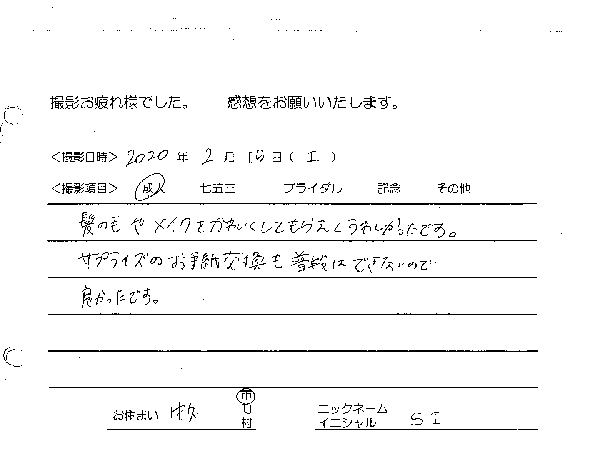 撮影お疲れ様でした。 感想をお願いいたします。
<撮影日時> 2020 年 2 月 15 日 ( 土 )
<撮影項目> 成人 七五三 ブライダル 記念 その他
髪の毛やメイクをかわいくしてもらえてうれしかったです。
サプライズのお手紙交換も普段はできないので
良かったです。
お住まい 市 町 村 ニックネーム イニシャル S I